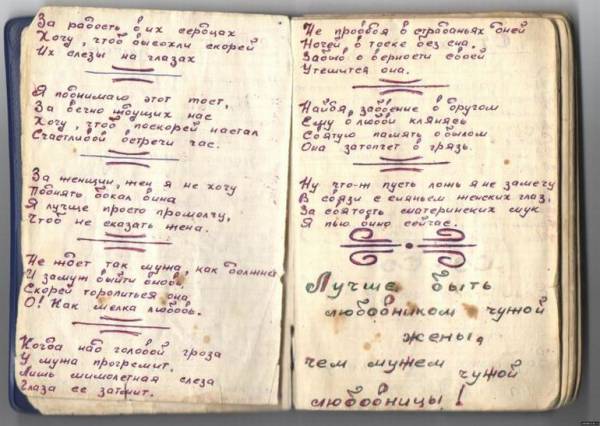 За радость в их сердцах
Хочу, чтоб высохли скорей
Их слезы на глазах
Я поднимаю этот тост,
За вечно ждущих нас
Хочу, чтоб поскорей настал
Счастливой встречи час.
За женщин, жен я не хочу
Поднять бокал вина
Я лучше просто промолчу,
Чтоб не сказать жена.
Не ждет так мужа, как должна
И замуж выйти вновь
Скорей торопиться она
О! Как мелка любовь.
Когда над головой гроза
У мужа прогремит.
Лишь мимолетная слеза
Глаза ее затмит.
Не проводя в страданьях дней
Ночей в тоске без сна.
Забыв о верности своей
Утешится она.
Найдя, забвение в другом
Ему о любви клянясь
Святую память о былом
Она затопчет в грязь.
Ну что-ж пусть ложь я не замечу
В связи с сияньем женских глаз,
За святость материнских мук
Я пью вино сейчас.
Лучше быть
любовником чужой
жены,
чем мужем
чужой
любовницы!